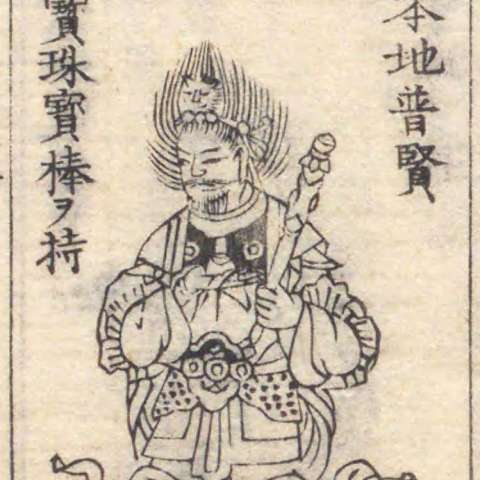 本地普賢
寶珠寶棒ヲ持